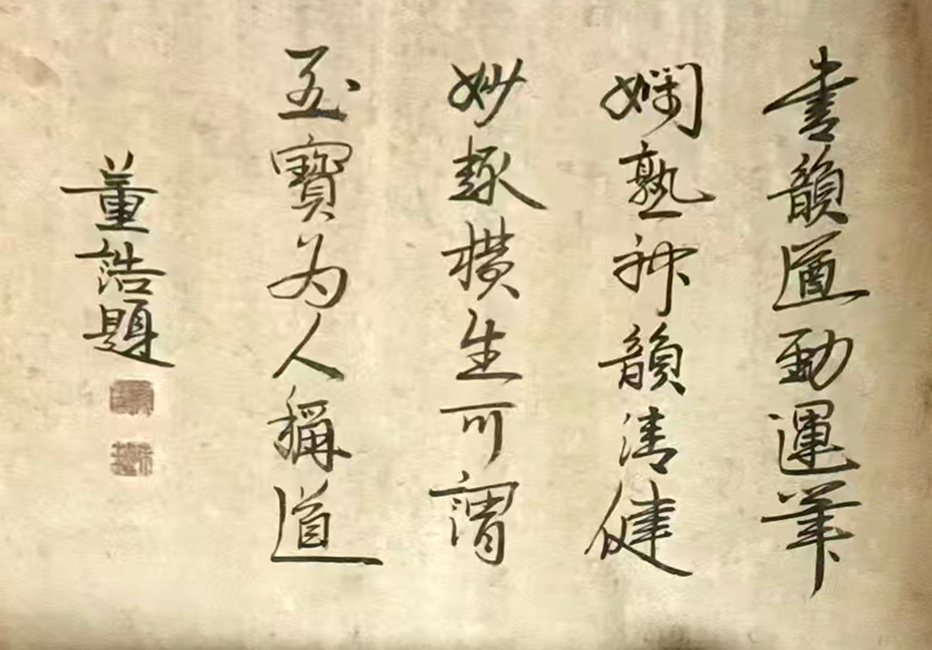 書韻遒勁運筆
嫻熟神韻清健
妙趣橫生可謂
至寶为人稱道
董誥題